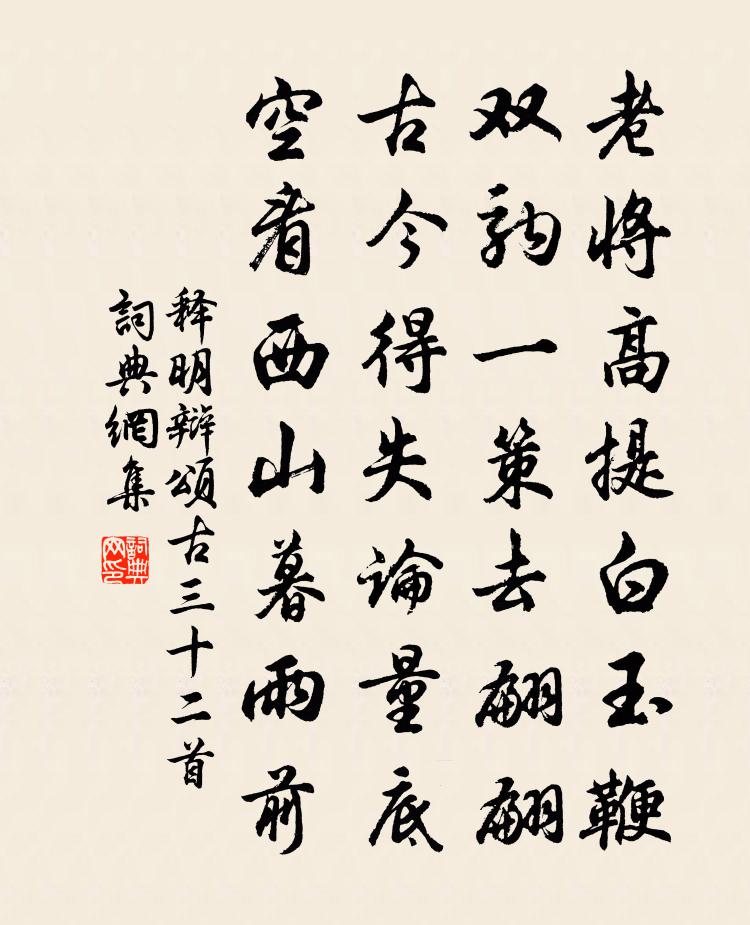 老將高提白玉鞭
双駒一策去翩翩
古今得失论量底
空看西山暮雨前
释明辯頌古三十二首
詞典網集
詞典网印